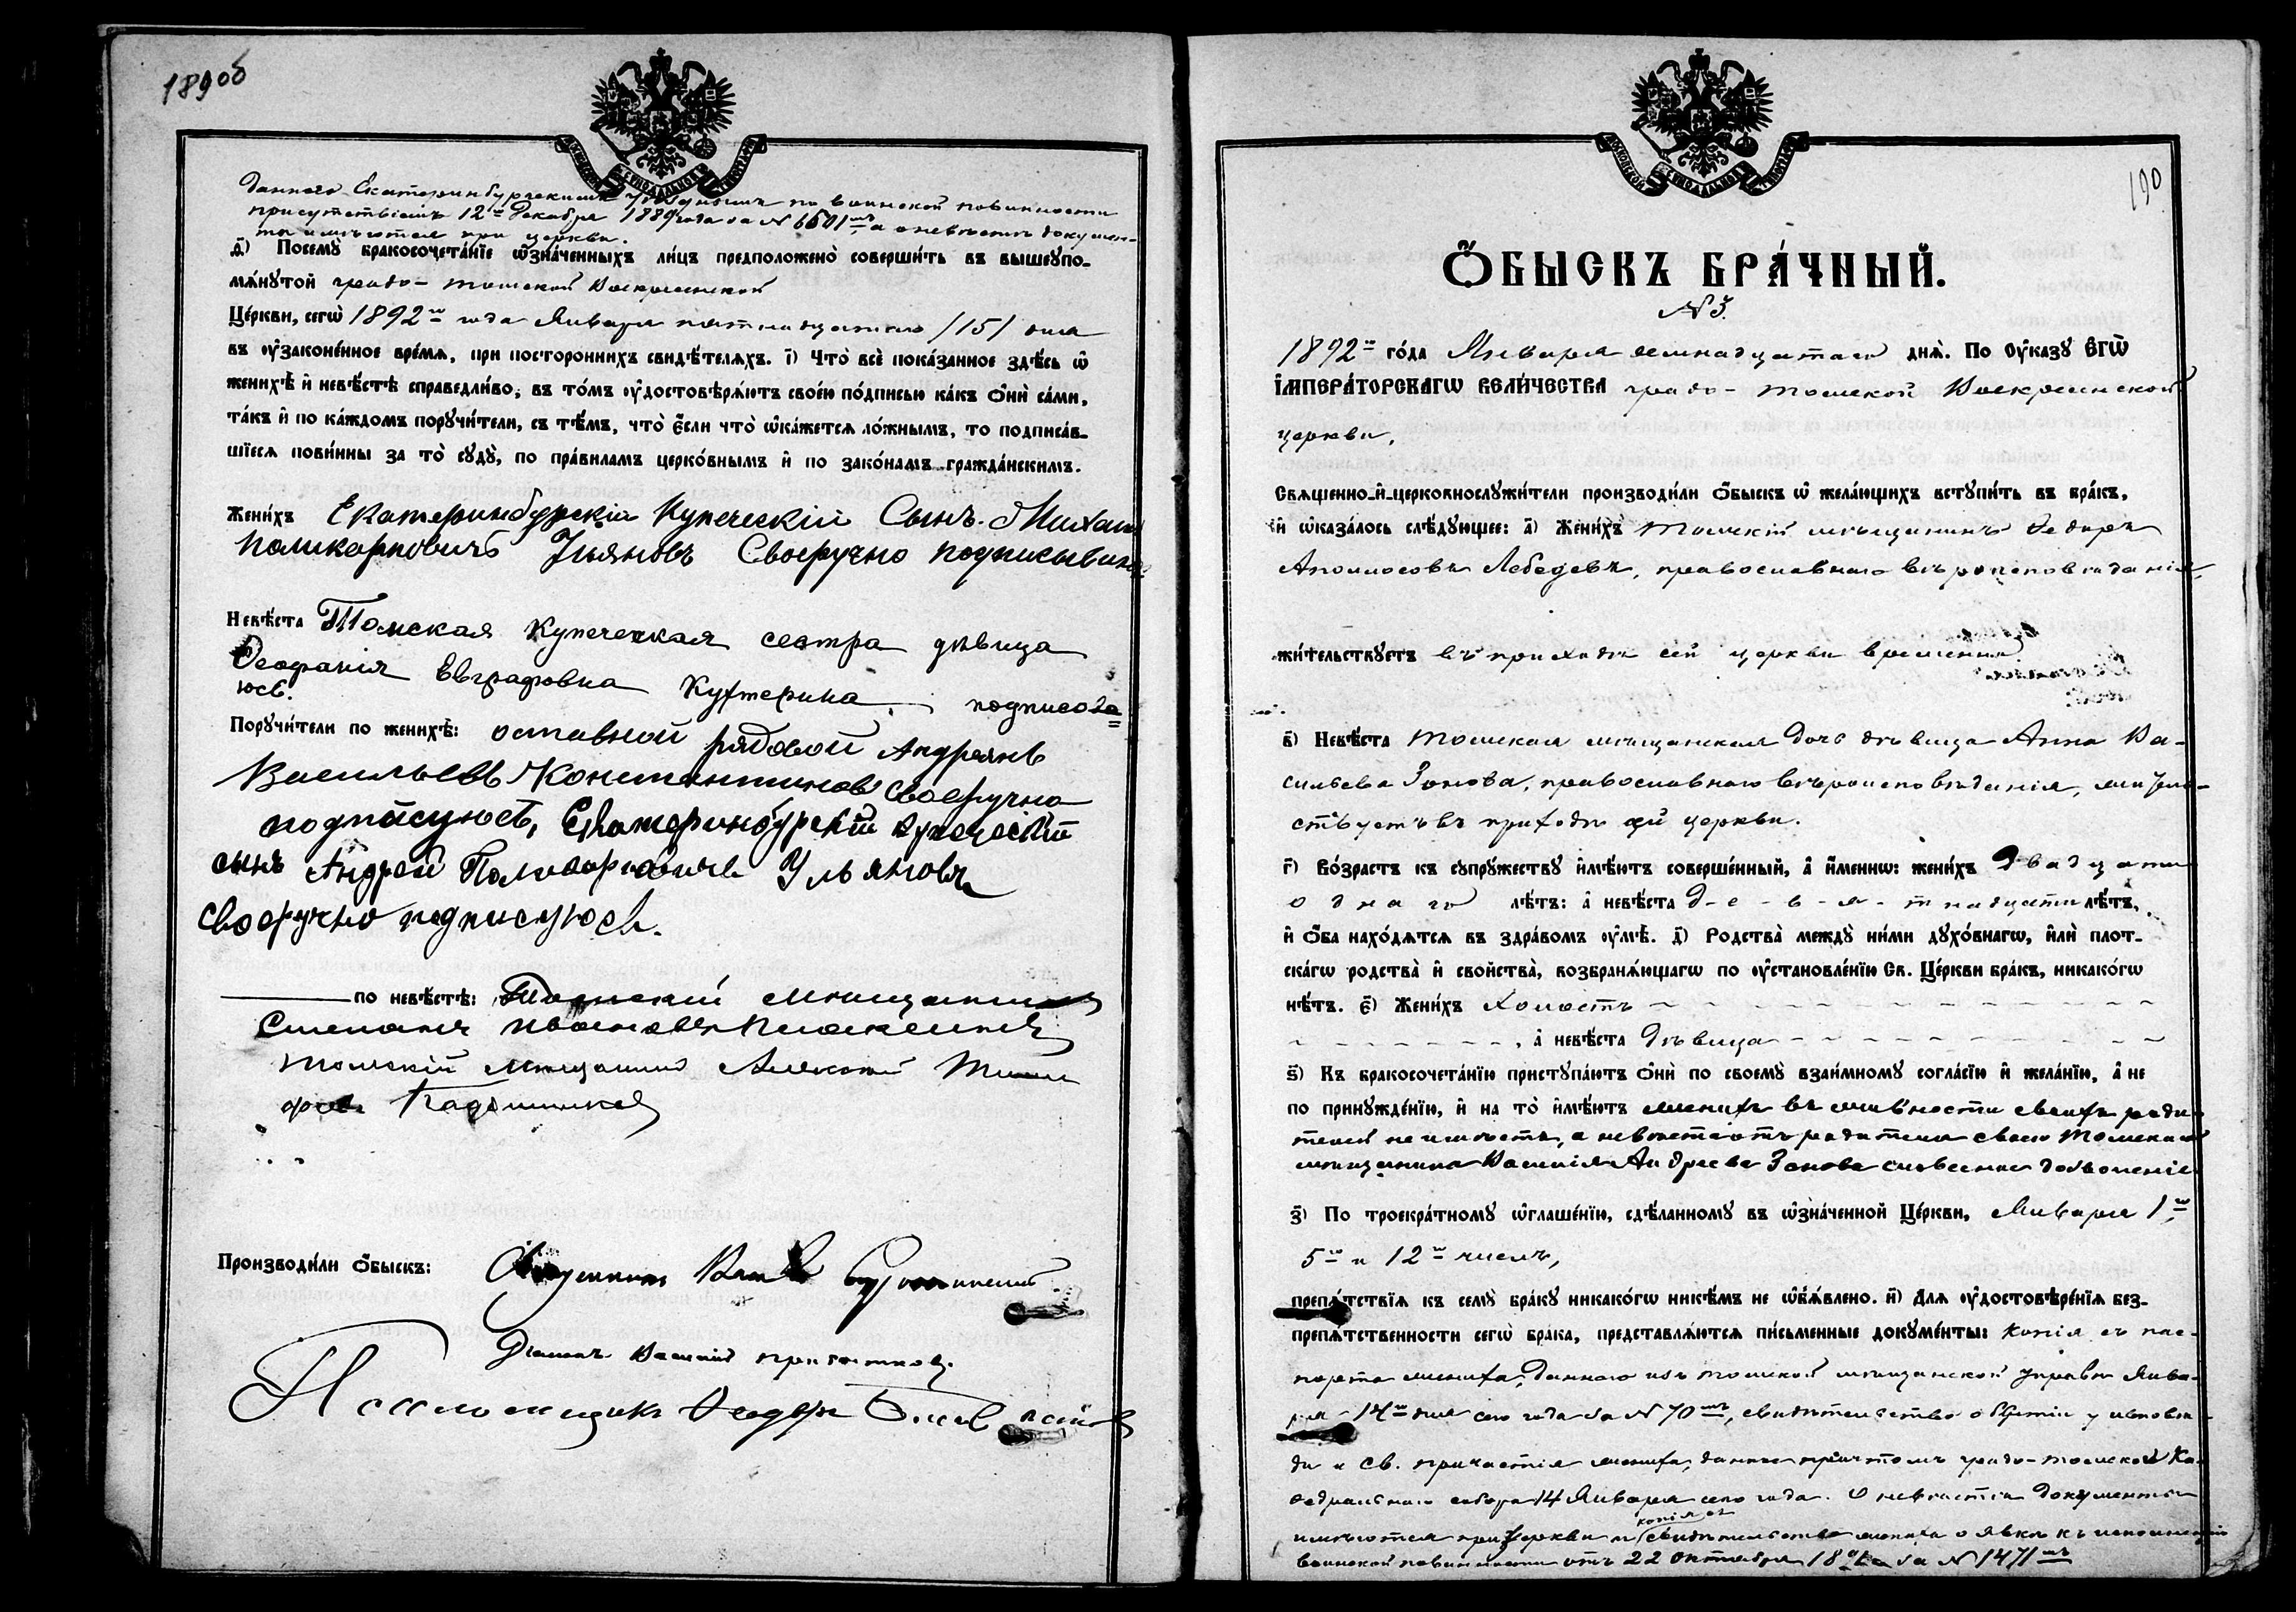 189об
даннаго Екатеринбургскимъ уѣзднымъ по воинской повинности
присутствіемъ 12го Декабря 1889 года за № 6501мъ, а о невѣстѣ докумен-
ты имѣются при церкви.
д҃) Посемꙋ̀ бракосочета́нїе ѡ҆зна́ченныхъ ли́цъ предположено̀ соверши́ть въ вышеꙋпо-
мѧ́нꙋтой градо-томской Воскресенской
Це́ркви, сегѡ̀ 1892го года Января пятнадцатаго /15/ дня
въ ᲂу҆законе́нное вре́мѧ, при постороннихъ свидѣ́телѧхъ. і҃) Что̀ всѐ пока́занное здѣ́сь ѡ҆
женихѣ̀ и҆ невѣ́стѣ справедли́во, въ то́мъ ᲂу҆достовѣрѧ́ютъ свое́ю по́дписью ка́къ ѻ҆нѝ са́ми,
та́къ и҆ по ка́ждомъ порꙋчи́тели, съ тѣ́мъ, что̀ є҆́сли что̀ ѡ҆ка́жетсѧ ло́жнымъ, то подписа́в-
шїесѧ пови́нны за то̀ сꙋдꙋ̀, по пра́виламъ церко́внымъ и҆ по зако́намъ гражда́нскимъ.
Жени́хъ Екатеринбургскій Купеческій Сынъ. Михаилъ
Поликарповичъ Ульяновъ Своеручно подписываюсь
Невѣ́ста Томская Купеческая сестра дѣвица
Ѳеофанія Евграфовна Кухтерина, подписова
юсь.
Порꙋчи́тели по женихѣ̀: оставной рядовой Андреянъ
Васильевъ Константиновъ своеручно
подписуюсь, Екатеринбургскій купеческій
сынъ Андрей Поликарповичъ Ульяновъ
своеручно подписуюсь.
по невѣ́стѣ: Томскій мѣщанинъ
Степанъ Ивановъ
томскій мѣщанинъ Алексѣй
Производи́ли ѻ҆́быскъ: Священникъ
Діаконъ Василій
Псаломщикъ Ѳедоръ
190
Ѻ҆́БЫСКЪ БРА́ЧНЫЙ.
№ 3.
1892го го́да Января пятнадцатаго днѧ̀. По Оу҆казꙋ Є҆гѡ̀
І҆мпера́торскагѡ Вели́чества градо-томской Воскресенской
церкви,
Свѧщенно-и҆-церковнослꙋжи́тели производи́ли ѻ҆́быскъ ѡ҆ жела́ющихъ встꙋпи́ть въ бра́къ,
и҆ ѡ҆каза́лось слѣ́дꙋющее: а҃) Жени́хъ Томскій мѣщанинъ Ѳедоръ
Аполлосовъ Лебедевъ, православнаго вѣроисповѣданія,
жи́тельствꙋетъ въ приходѣ сей церкви временно
в҃) Невѣ́ста томская мѣщанская дочь дѣвица Анна Ва-
сильева Зонова, православнаго вѣроисповѣданія, житель-
ствуетъ въ приходѣ сей церкви.
г҃) Во́зрастъ къ сꙋпрꙋжествꙋ и҆мѣ́ютъ соверше́нный, а҆ и҆́меннѡ: жени́хъ двадцати
одного лѣ́тъ: а҆ невѣ́ста д-е-в-я-тнадцати лѣ́тъ,
и҆ ѻ҆́ба нахо́дѧтсѧ въ здра́вомъ ᲂу҆мѣ̀. д҃) Родства̀ междꙋ̀ ни́ми дꙋхо́внагѡ, и҆лѝ плот-
ска́гѡ родства̀ и҆ сво́йства̀, возбранѧ́ющагѡ по ᲂу҆становле́нїю Св. Це́ркви бра́къ, никако́гѡ
нѣ́тъ. є҃) Жени́хъ холостъ
, а҆ невѣ́ста дѣвица
ѕ҃) Къ бракосочета́нїю пристꙋпа́ютъ ѻ҆нѝ по своемꙋ̀ взаи́мномꙋ согла́сїю и҆ жела́нїю, а҆ не
по принꙋжде́нїю, и҆ на то̀ и҆мѣ́ютъ женихъ въ живности своихъ роди-
телей не имѣетъ, а невѣста отъ родителя своего томскаго
мѣщанина Василія Андреева Зонова словесное дозволеніе
з҃) По троекра́тномꙋ ѡ҆глаше́нїю, сдѣ́ланномꙋ въ ѡ҆зна́ченной Це́ркви, Января 1го,
5го и 12го числъ,
препѧ́тствїѧ къ семꙋ̀ бра́кꙋ никако́гѡ нике́мъ не ѡ҆бъѧ́влено. и҃) Длѧ ᲂу҆достовѣре́нїѧ без-
препѧ́тственности сегѡ̀ бра́ка, представлѧ́ютсѧ пи́сьменные докꙋме́нты: копія съ пас-
порта жениха, даннаго изъ томской мѣщанской управы Янва-
ря 14го дня сего года за № 70мъ, свидѣтельство о бытіи у исповѣ-
ди и св. причастія жениха, данное причтомъ градо-томскаго Ка-
ѳедральнаго собора 14 Января сего года. О невѣстѣ документы
имѣются при церкви и копія съ свидѣтельства жениха о явкѣ къ исполненію
воинской повинности отъ 22 Октября за № 1471мъ